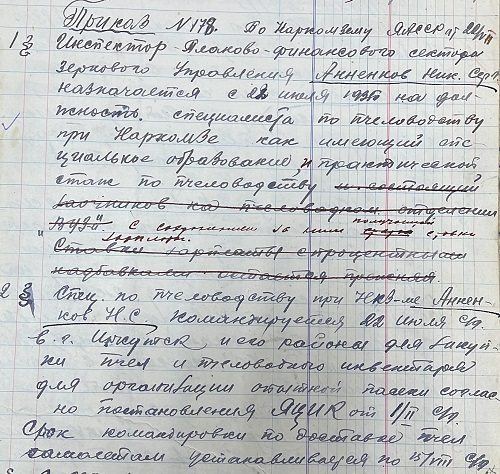 Приказ N 178. По Наркомзему ЯАССР от 22/VII
1 § Инспектор-Планово-финансового сектора
Зернового Управления Анненков Ник. Серг.
назначается с 22 июля 1935 на дол-
жность специалиста по пчеловодству
при НаркомЗе как имеющий спе-
циальное образование, и практической
стаж по пчеловодству и состоящий
заочников на пчеловодном отделении
ВУЗа". с сохранением за ним получаемой
зарплаты.
"Ставки зарплаты с процентными
надбавками остается прежняя.
2 § Спец. по пчеловодству при НКЗ-ме Аннен-
ков Н.С. командируется 22 июля с/г.
в г. Иркутск и его районы для закуп-
ки пчел и пчеловодного инвентаря
для организации опытной пасеки соглас-
но постановления ЯЦИК от 1/II с/г.
Срок командировки по доставке пчел
самолетом устанавливается по 15/VIII с/г.